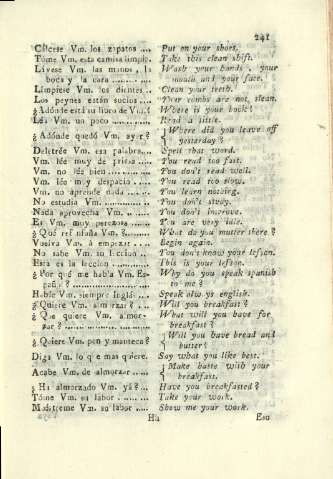 241
Cálcese Vm. los zapatos .... Put on your shoes.
Tome Vm. esta camisa limpia. Take this clean shift.
Lávese Vm. las manos, la Wash your hands, your
boca y la cara .......... mouth and your face.
Límpiese Vm. los dientes.. Clean your teeth.
Los peynes están sucios .... Your combs are not clean.
¿Adónde está su libro de Vm.? Where is your book?
Léa Vm. un poco .......... Read a little.
¿Adónde quedó Vm. ayer? Where did you leave off
yesterday?
Deletrée Vm. esa palabra... Spell that word.
Vm. lée muy de prisa .... You read too fast.
Vm. no lée bien .......... You don't read well.
Vm. lée muy despacio .... You read too slow.
Vm. no aprende nada ...... You learn nothing.
No estudia Vm. .......... You don't study.
Nada aprovecha Vm. ...... You don't improve.
Es Vm. muy perezosa ...... You are very idle.
¿Qué refunfuña Vm. ?........ What do you mutter there?
Vuelva Vm. á empezar .... Begin again.
No sabe Vm. su leccion .. You don't know your lesson.
Esta es la leccion ........ This is your lesson.
¿Por qué me habla Vm. Es- Why do you speak spanish
pañol? .............. to me?
Hable Vm. siempre Inglés .... Speak always english.
¿Quiere Vm. almorzar? .... Will you breakfast?
¿Que quiere Vm. almor- What will you have for
zar? .................. breakfast?
¿Quiere Vm. pan y manteca? Will you have bread and
butter?
Diga Vm. lo que mas quiere. Say what you like best.
Acabe Vm. de almorzar .... Make haste with your
breakfast.
¿Ha almorzado Vm. yá?... Have you breakfasted?
Tóme Vm. su labor ........ Take your work.
Muéstreme Vm. su labor .... Show me your work.
Hh Eso